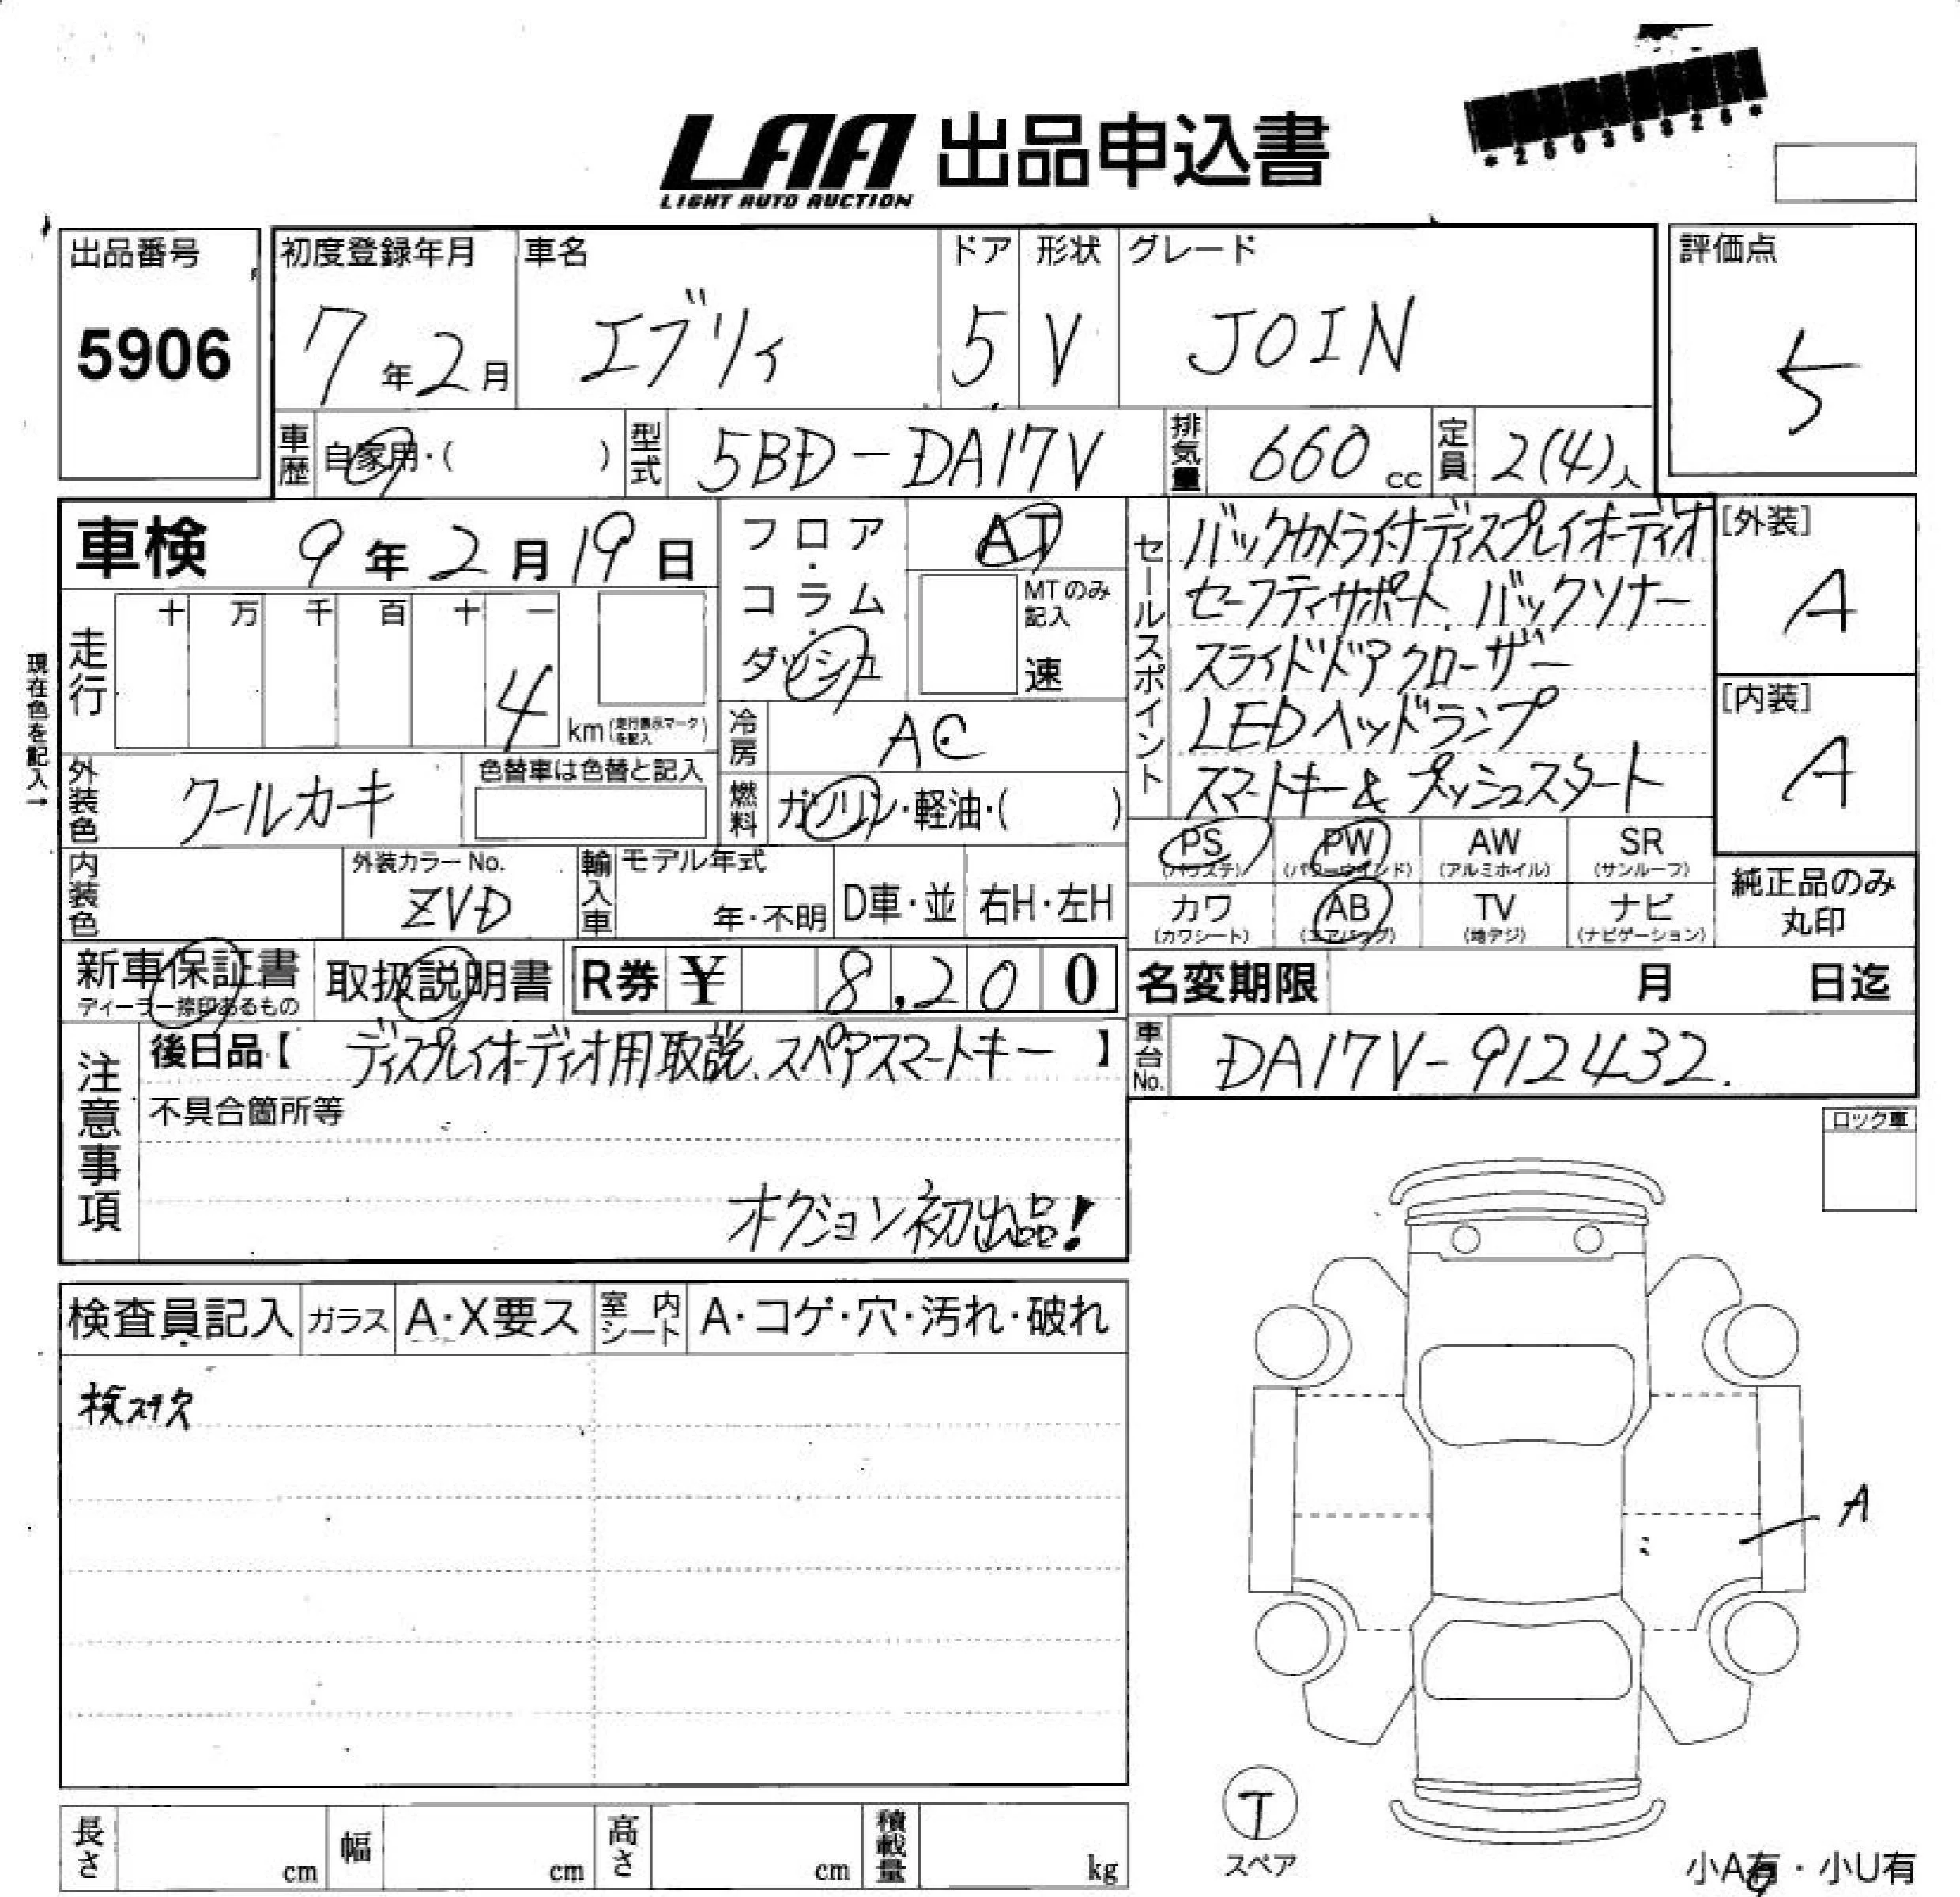 LAA 出品申込書
LIGHT AUTO AUCTION
*25035826*
出品番号
5906
初度登録年月
7年2月
車名
エブリィ
ドア
5
形状
V
グレード
JOIN
評価点
5
車歴
自家用・( )
型式
5BD-DA17V
排気量
660cc
定員
2(4)人
車検 9年2月19日
フロア・コラム・ダッシュ
AT
MTのみ記入
速
セールスポイント
バックカメラ付ディスプレイオーディオ
セーフティサポート、バックソナー
スライドドアクローザー
LEDヘッドランプ
スマートキー&プッシュスタート
[外装]
A
[内装]
A
現在色を記入→
走行
十 万 千 百 十 一
4
km(走行表示マークを記入)
冷房
AC
燃料
ガソリン・軽油・( )
外装色
クールカーキ
色替車は色替と記入
内装色
外装カラーNo.
ZVD
輸入車
モデル年式
年・不明
D車・並
右H・左H
PS
(パワステ)
PW
(パワーウインド)
AW
(アルミホイル)
SR
(サンルーフ)
カワ
(カワシート)
AB
(エアバッグ)
TV
(地デジ)
ナビ
(ナビゲーション)
純正品のみ
丸印
新車保証書
ディーラー捺印あるもの
取扱説明書
R券 ¥ 8,200
名変期限 月 日迄
注意事項
後日品【 ディスプレイオーディオ用取説、スペアスマートキー 】
不具合箇所等
オクション初出品!
車台No.
DA17V-912432.
ロック車
検査員記入
ガラス
A・X要ス
室内シート
A・コゲ・穴・汚れ・破れ
検ステ欠
A
T
スペア
長さ cm
幅 cm
高さ cm
積載量 kg
小A有・小U有